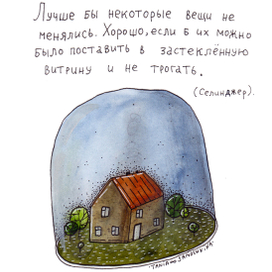 Лучше бы некоторые вещи не
менялись. Хорошо, если б их можно
было поставить в застеклённую
витрину и не трогать.
(Селинджер).